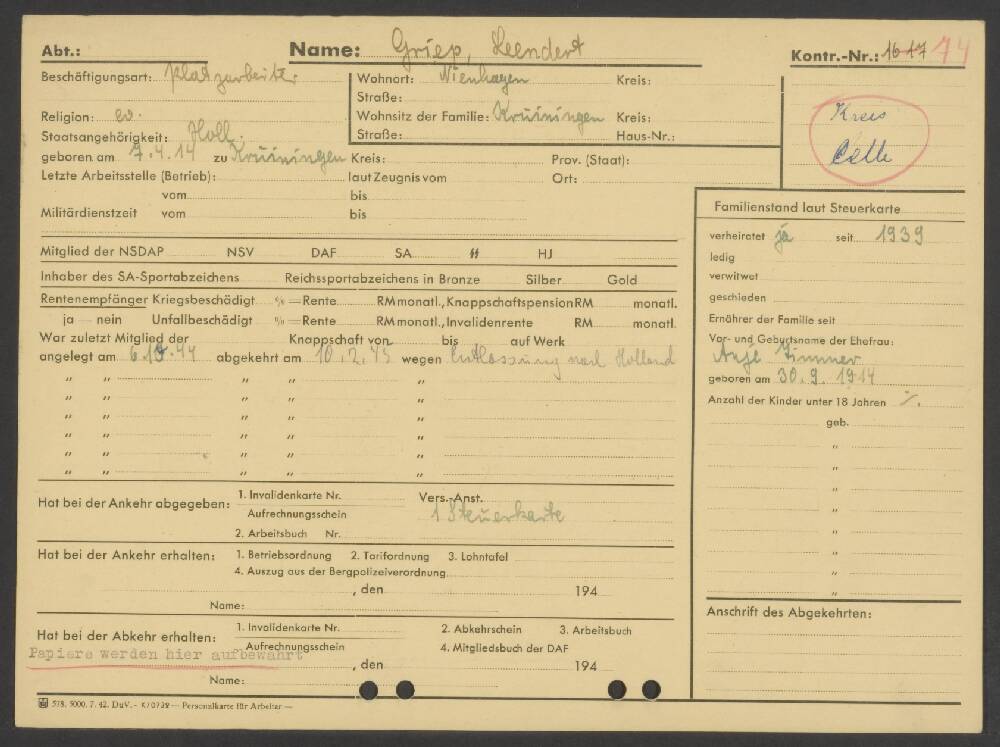 Abt.: Name: Griep, Leendert Kontr.-Nr.: 1617 74
Beschäftigungsart: Platzarbeiter Wohnort: Nienhagen Kreis:
Straße:
Religion: ev. Wohnsitz der Familie: Kruiningen Kreis:
Staatsangehörigkeit: Holl. Straße: Haus-Nr.:
Kreis
Celle
geboren am 7.4.14 zu Kruiningen Kreis: Prov. (Staat):
Letzte Arbeitsstelle (Betrieb): laut Zeugnis vom Ort:
vom bis
Militärdienstzeit vom bis
Mitglied der NSDAP NSV DAF SA SS HJ
Inhaber des SA-Sportabzeichens Reichssportabzeichens in Bronze Silber Gold
Rentenempfänger Kriegsbeschädigt % = Rente RM monatl., Knappschaftspension RM monatl.
ja — nein Unfallbeschädigt % = Rente RM monatl., Invalidenrente RM monatl.
War zuletzt Mitglied der Knappschaft von bis auf Werk
angelegt am abgekehrt am 10.2.45 wegen Entlassung nach Holland
" " " " "
" " " " "
" " " " "
" " " " "
" " " " "
" " " " "
Hat bei der Ankehr abgegeben: 1. Invalidenkarte Nr. Vers.-Anst.
Aufrechnungsschein 1 Steuerkarte
2. Arbeitsbuch Nr.
Hat bei der Ankehr erhalten: 1. Betriebsordnung 2. Tarifordnung 3. Lohntafel
4. Auszug aus der Bergpolizeiverordnung
, den 194
Name:
Hat bei der Abkehr erhalten: 1. Invalidenkarte Nr. 2. Abkehrschein 3. Arbeitsbuch
Aufrechnungsschein 4. Mitgliedsbuch der DAF
Papiere werden hier aufbewahrt
, den 194
Name:
578. 5000. 7. 42. DuV. - K/0729 — Personalkarte für Arbeiter —
Familienstand laut Steuerkarte
verheiratet ja seit 1939
ledig
verwitwet
geschieden
Ernährer der Familie seit
Vor- und Geburtsname der Ehefrau:
Zimmer
geboren am 30.9.1914
Anzahl der Kinder unter 18 Jahren ./.
geb.
"
"
"
"
"
"
"
"
Anschrift des Abgekehrten: